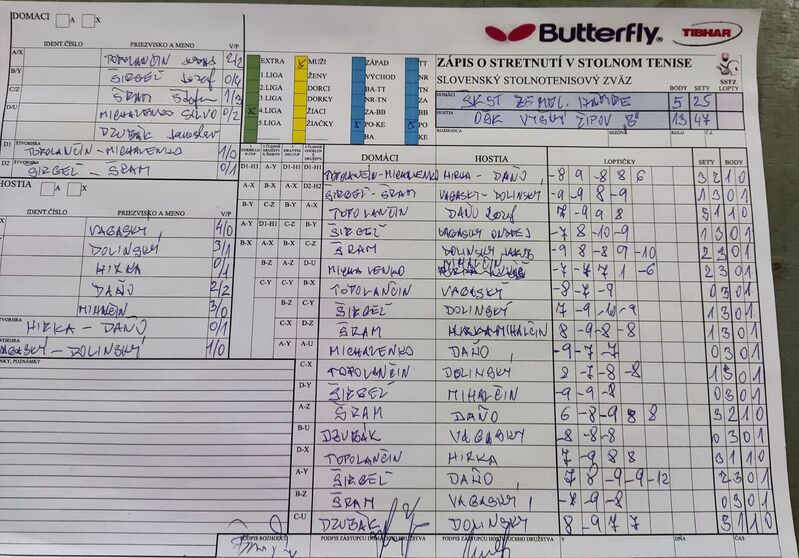 DOMÁCI A X
IDENT.ČÍSLO PRIEZVISKO A MENO V/P
A/X TOPOLANČIN 2/2
B/Y ŠIRGEĽ Jozef 0/4
C/Z ŠRAM Štefan 1/3
D/U MICHALENKO SILVO 0/2
DZUBÁK Jaroslav
D1 ŠTVORHRA TOPOLANČIN - MICHALENKO 1/0
D2 ŠTVORHRA ŠIRGEĽ - ŠRAM 0/1
HOSTIA A X
IDENT.ČÍSLO PRIEZVISKO A MENO V/P
VAGASKÝ 4/0
DOLINSKÝ 3/1
HIRKA 0/1
DAŇO 2/2
MIHALČIN 3/0
ŠTVORHRA HIRKA - DAŇO 0/1
ŠTVORHRA VAGASKÝ - DOLINSKÝ 1/0
POZNÁMKY
EXTRA X MUŽI ZÁPAD TT
1.LIGA ŽENY VÝCHOD NR
2.LIGA DORCI BA-TT TN
3.LIGA DORKY NR-TN ZA
X 4.LIGA ŽIACI ZA-BB BB
5.LIGA ŽIAČKY X PO-KE PO
BA KE
Butterfly TIBHAR
ZÁPIS O STRETNUTÍ V STOLNOM TENISE
SLOVENSKÝ STOLNOTENISOVÝ ZVÄZ SSTZ
BODY SETY LOPTY
DOMÁCI SKST ZEMPL. 5 25
HOSTIA OŠK VYŠNÝ ŽIPOV B 13 47
ROZHODCA SEZÓNA KOLO Č.
DOMÁCI HOSTIA LOPTIČKY SETY BODY
D1-H1 A-Y D1-H1 D1-H1 TOPOLANČIN-MICHALENKO HIRKA - DAŇO -8 9 -8 8 6 3 2 1 0
A-X B-X A-X D2-H2 ŠIRGEĽ - ŠRAM VAGASKÝ - DOLINSKÝ -9 -9 8 -9 1 3 0 1
B-Y C-Z B-Y A-X TOPOLANČIN DAŇO Jozef 7 -9 9 8 3 1 1 0
A-Y D1-H1 C-Z B-Y ŠIRGEĽ VAGASKÝ ONDREJ -7 8 -10 -9 1 3 0 1
B-X A-X B-X C-Z ŠRAM DOLINSKÝ -9 8 -8 9 -10 2 3 0 1
B-Z A-Z D-U MICHALENKO MIHALČIN -7 -7 7 1 -6 2 3 0 1
C-Y C-Y B-X TOPOLANČIN VAGASKÝ -8 -7 -9 0 3 0 1
B-Z C-Y ŠIRGEĽ DOLINSKÝ 7 -9 -6 -9 1 3 0 1
C-X D-Z ŠRAM MIHALČIN 8 -9 -8 -8 1 3 0 1
A-Y A-U MICHALENKO DAŇO -9 -7 -7 0 3 0 1
C-X TOPOLANČIN DOLINSKÝ 8 -7 -8 -8 1 3 0 1
D-Y ŠIRGEĽ MIHALČIN -9 -9 -8 0 3 0 1
A-Z ŠRAM DAŇO 6 -8 -9 8 8 3 2 1 0
B-U DZUBÁK VAGASKÝ -8 -8 -8 0 3 0 1
D-X TOPOLANČIN HIRKA 7 -9 8 8 3 1 1 0
A-Y ŠIRGEĽ DAŇO 7 8 -9 -9 -12 2 3 0 1
B-Z ŠRAM VAGASKÝ -7 -9 -8 0 3 0 1
C-U DZUBÁK DOLINSKÝ 8 -9 7 7 3 1 1 0
PODPIS ROZHODCU PODPIS ZÁSTUPCU DOMÁCEHO DRUŽSTVA PODPIS ZÁSTUPCU HOSŤUJÚCEHO DRUŽSTVA V DŇA ČAS